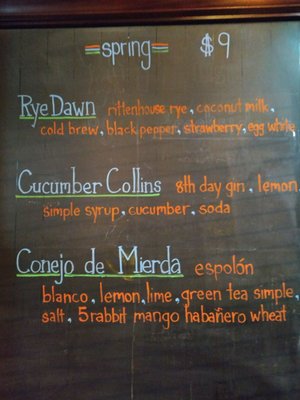 =spring= $9
Rye Dawn rittenhouse rye, coconut milk,
cold brew, black pepper, strawberry, egg white
Cucumber Collins 8th day gin, lemon,
simple syrup, cucumber, soda
Conejo de Mierda espolón
blanco, lemon, lime, green tea simple,
salt, 5 rabbit mango habañero wheat